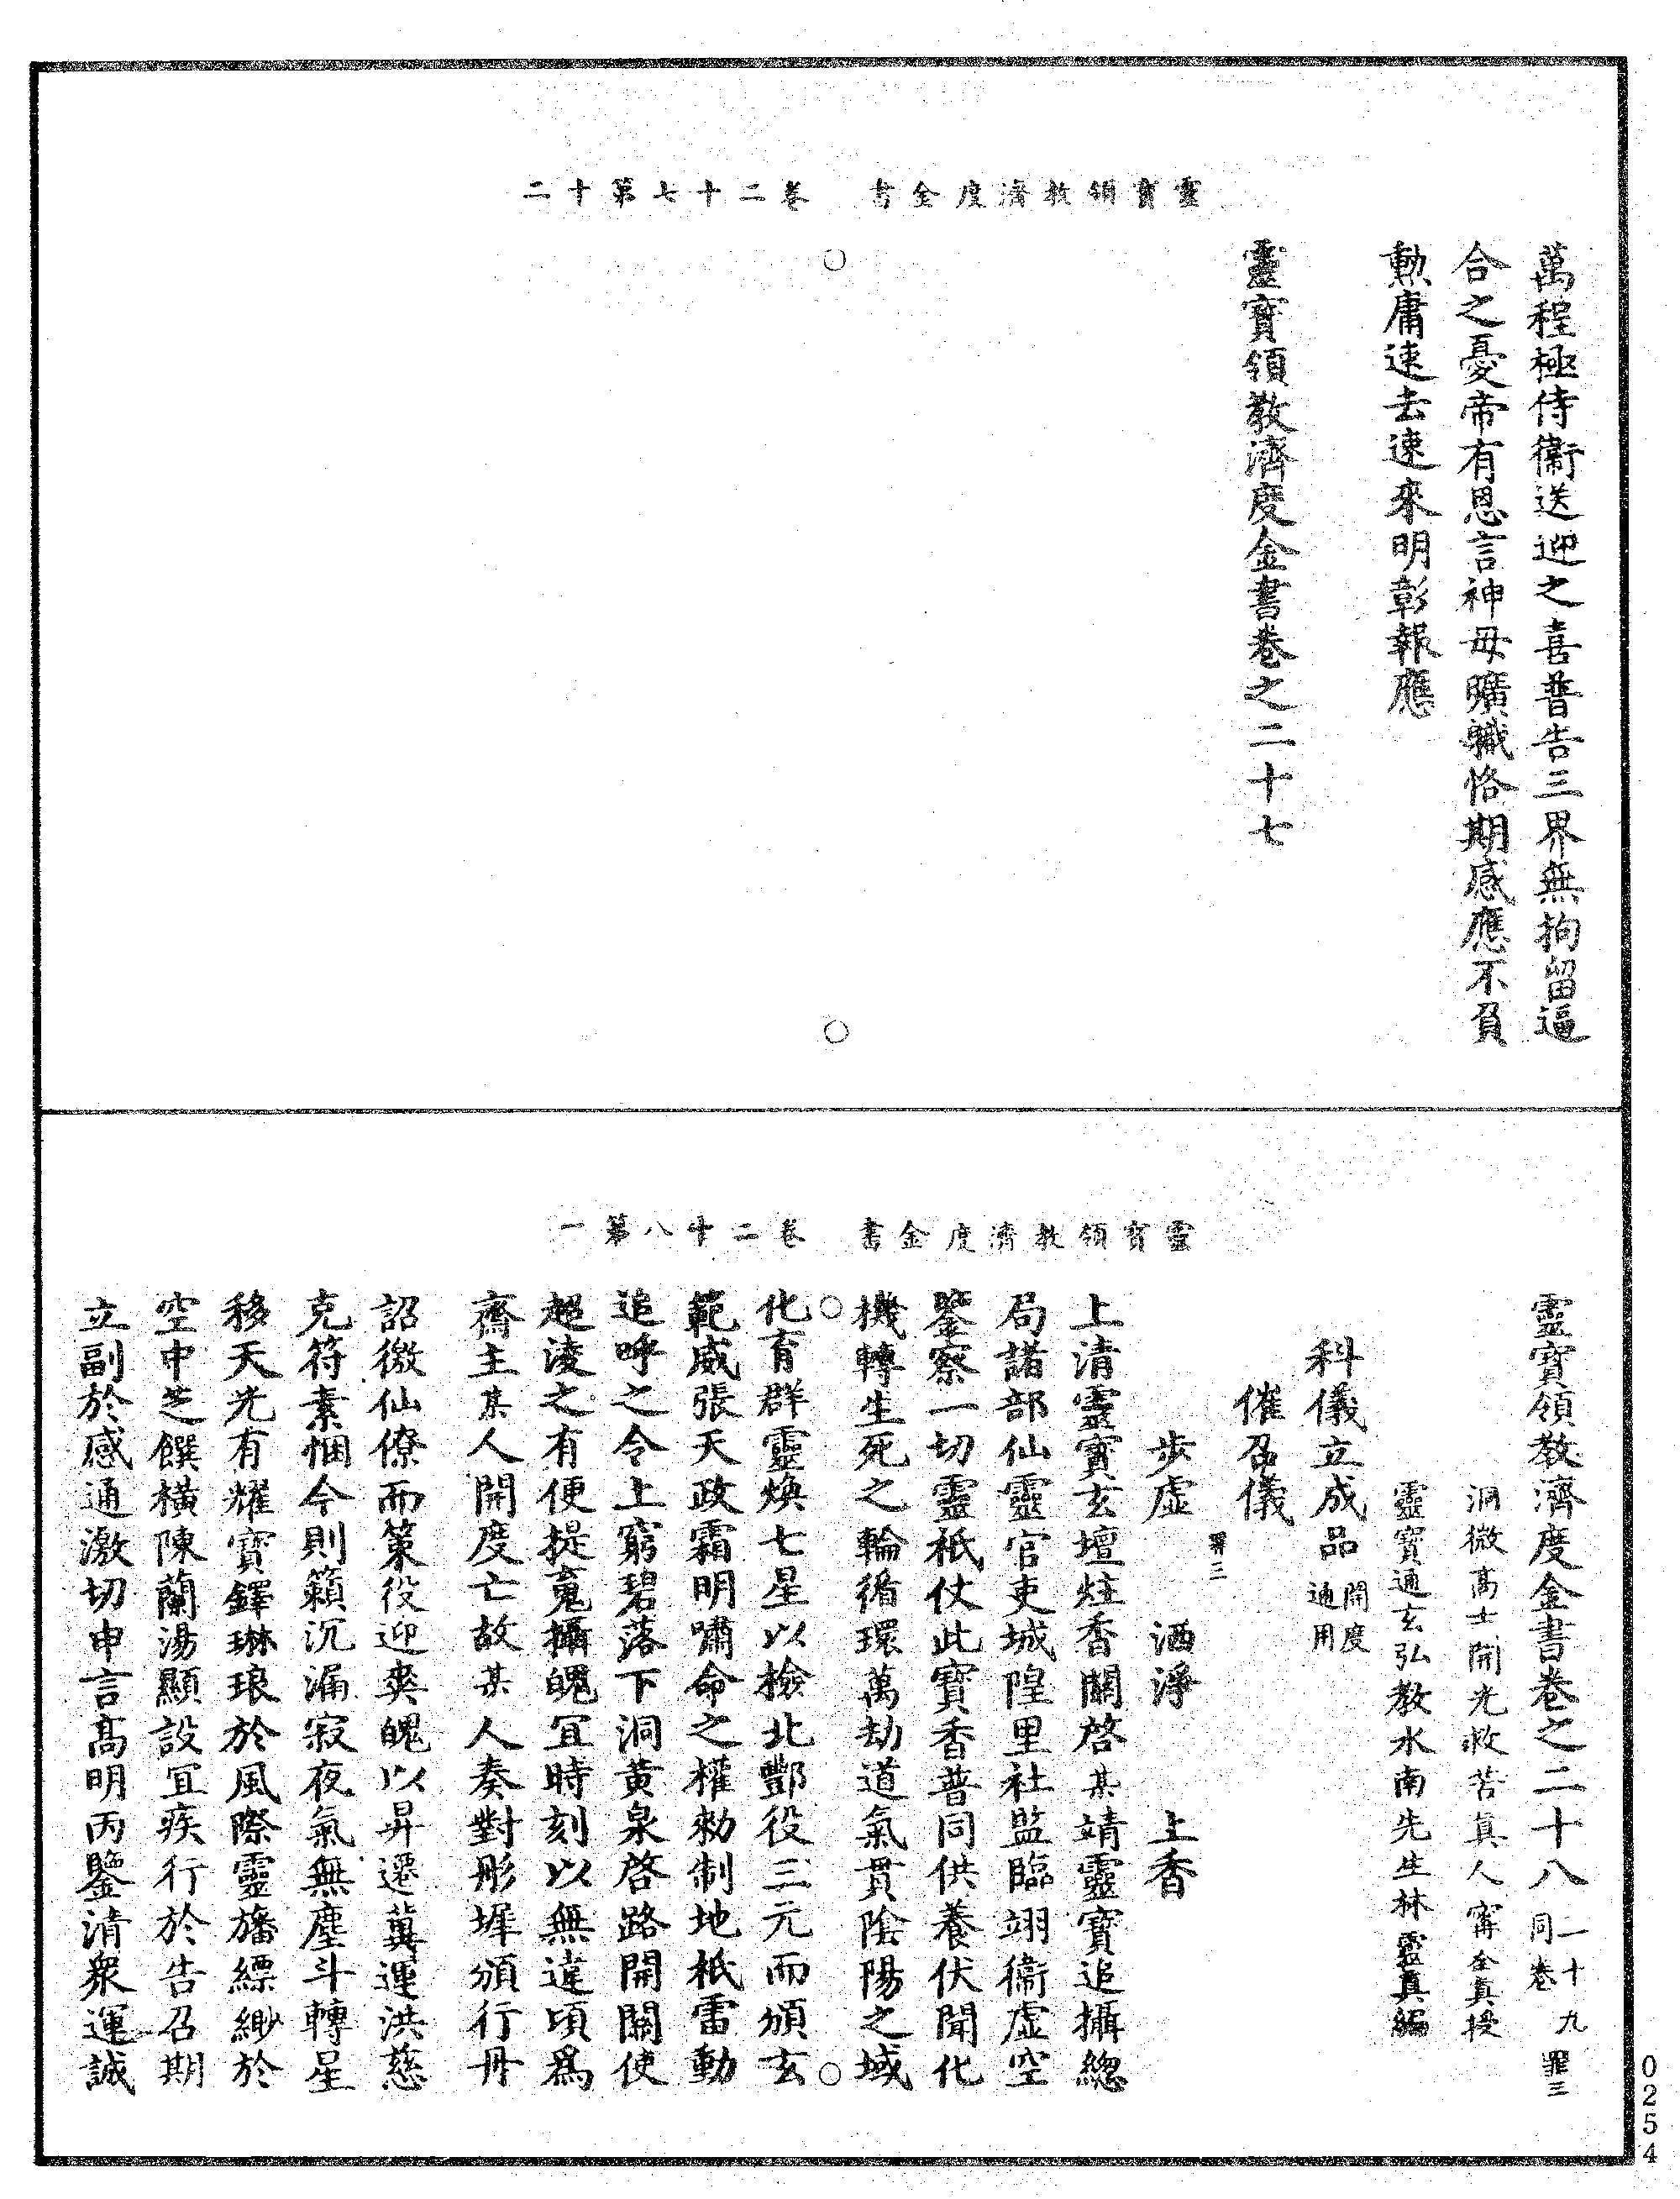 靈寶領教濟度金書　卷二十七第十二
萬程極侍衛送迎之喜普告三界無拘留逼
合之憂帝有恩言神毋曠職恪期感應不負
勲庸速去速來明彰報應
靈寶領教濟度金書卷之二十七
靈寶領教濟度金書　卷二十八第一
靈寶領教濟度金書卷之二十八　二十九同卷　罪三
洞微高士開光救苦真人甯全真授
靈寶通玄弘教水南先生林靈真編
科儀立成品　開度通用
催召儀
罪三
步虛　洒淨　上香
上清靈寶玄壇炷香關啓某靖靈寶追攝總
局諸部仙靈官吏城隍里社監臨翊衛虛空
鑒察一切靈祇仗此寶香普同供養伏聞化
機轉生死之輪循環萬劫道氣貫陰陽之域
化育群靈煥七星以檢北酆役三元而頒玄
範威張天政霜明嘯命之權勑制地祇雷動
追呼之令上窮碧落下洞黃泉啓路開關使
超淩之有便提䰟攝魄冝時刻以無違頃爲
齋主某人開度亡故某人奏對彤墀頒行丹
詔徵仙僚而策役迎爽魄以昇遷冀運洪慈
克符素悃今則籟沉漏寂夜氣無塵斗轉星
移天光有耀寶鐸琳琅於風際靈旛縹緲於
空中芝饌橫陳蘭湯顯設冝疾行於告召期
立副於感通激切申言高明丙鑒清衆運誠
0254